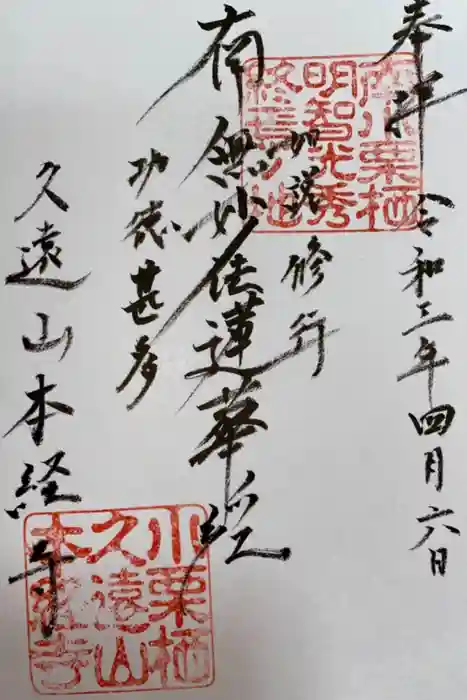 奉拝 令和三年四月六日
小栗栖
明智光秀
終焉ノ地
如説修行
南無妙法蓮華経
功徳甚多
久遠山本経寺
小栗栖
久遠山
本経寺